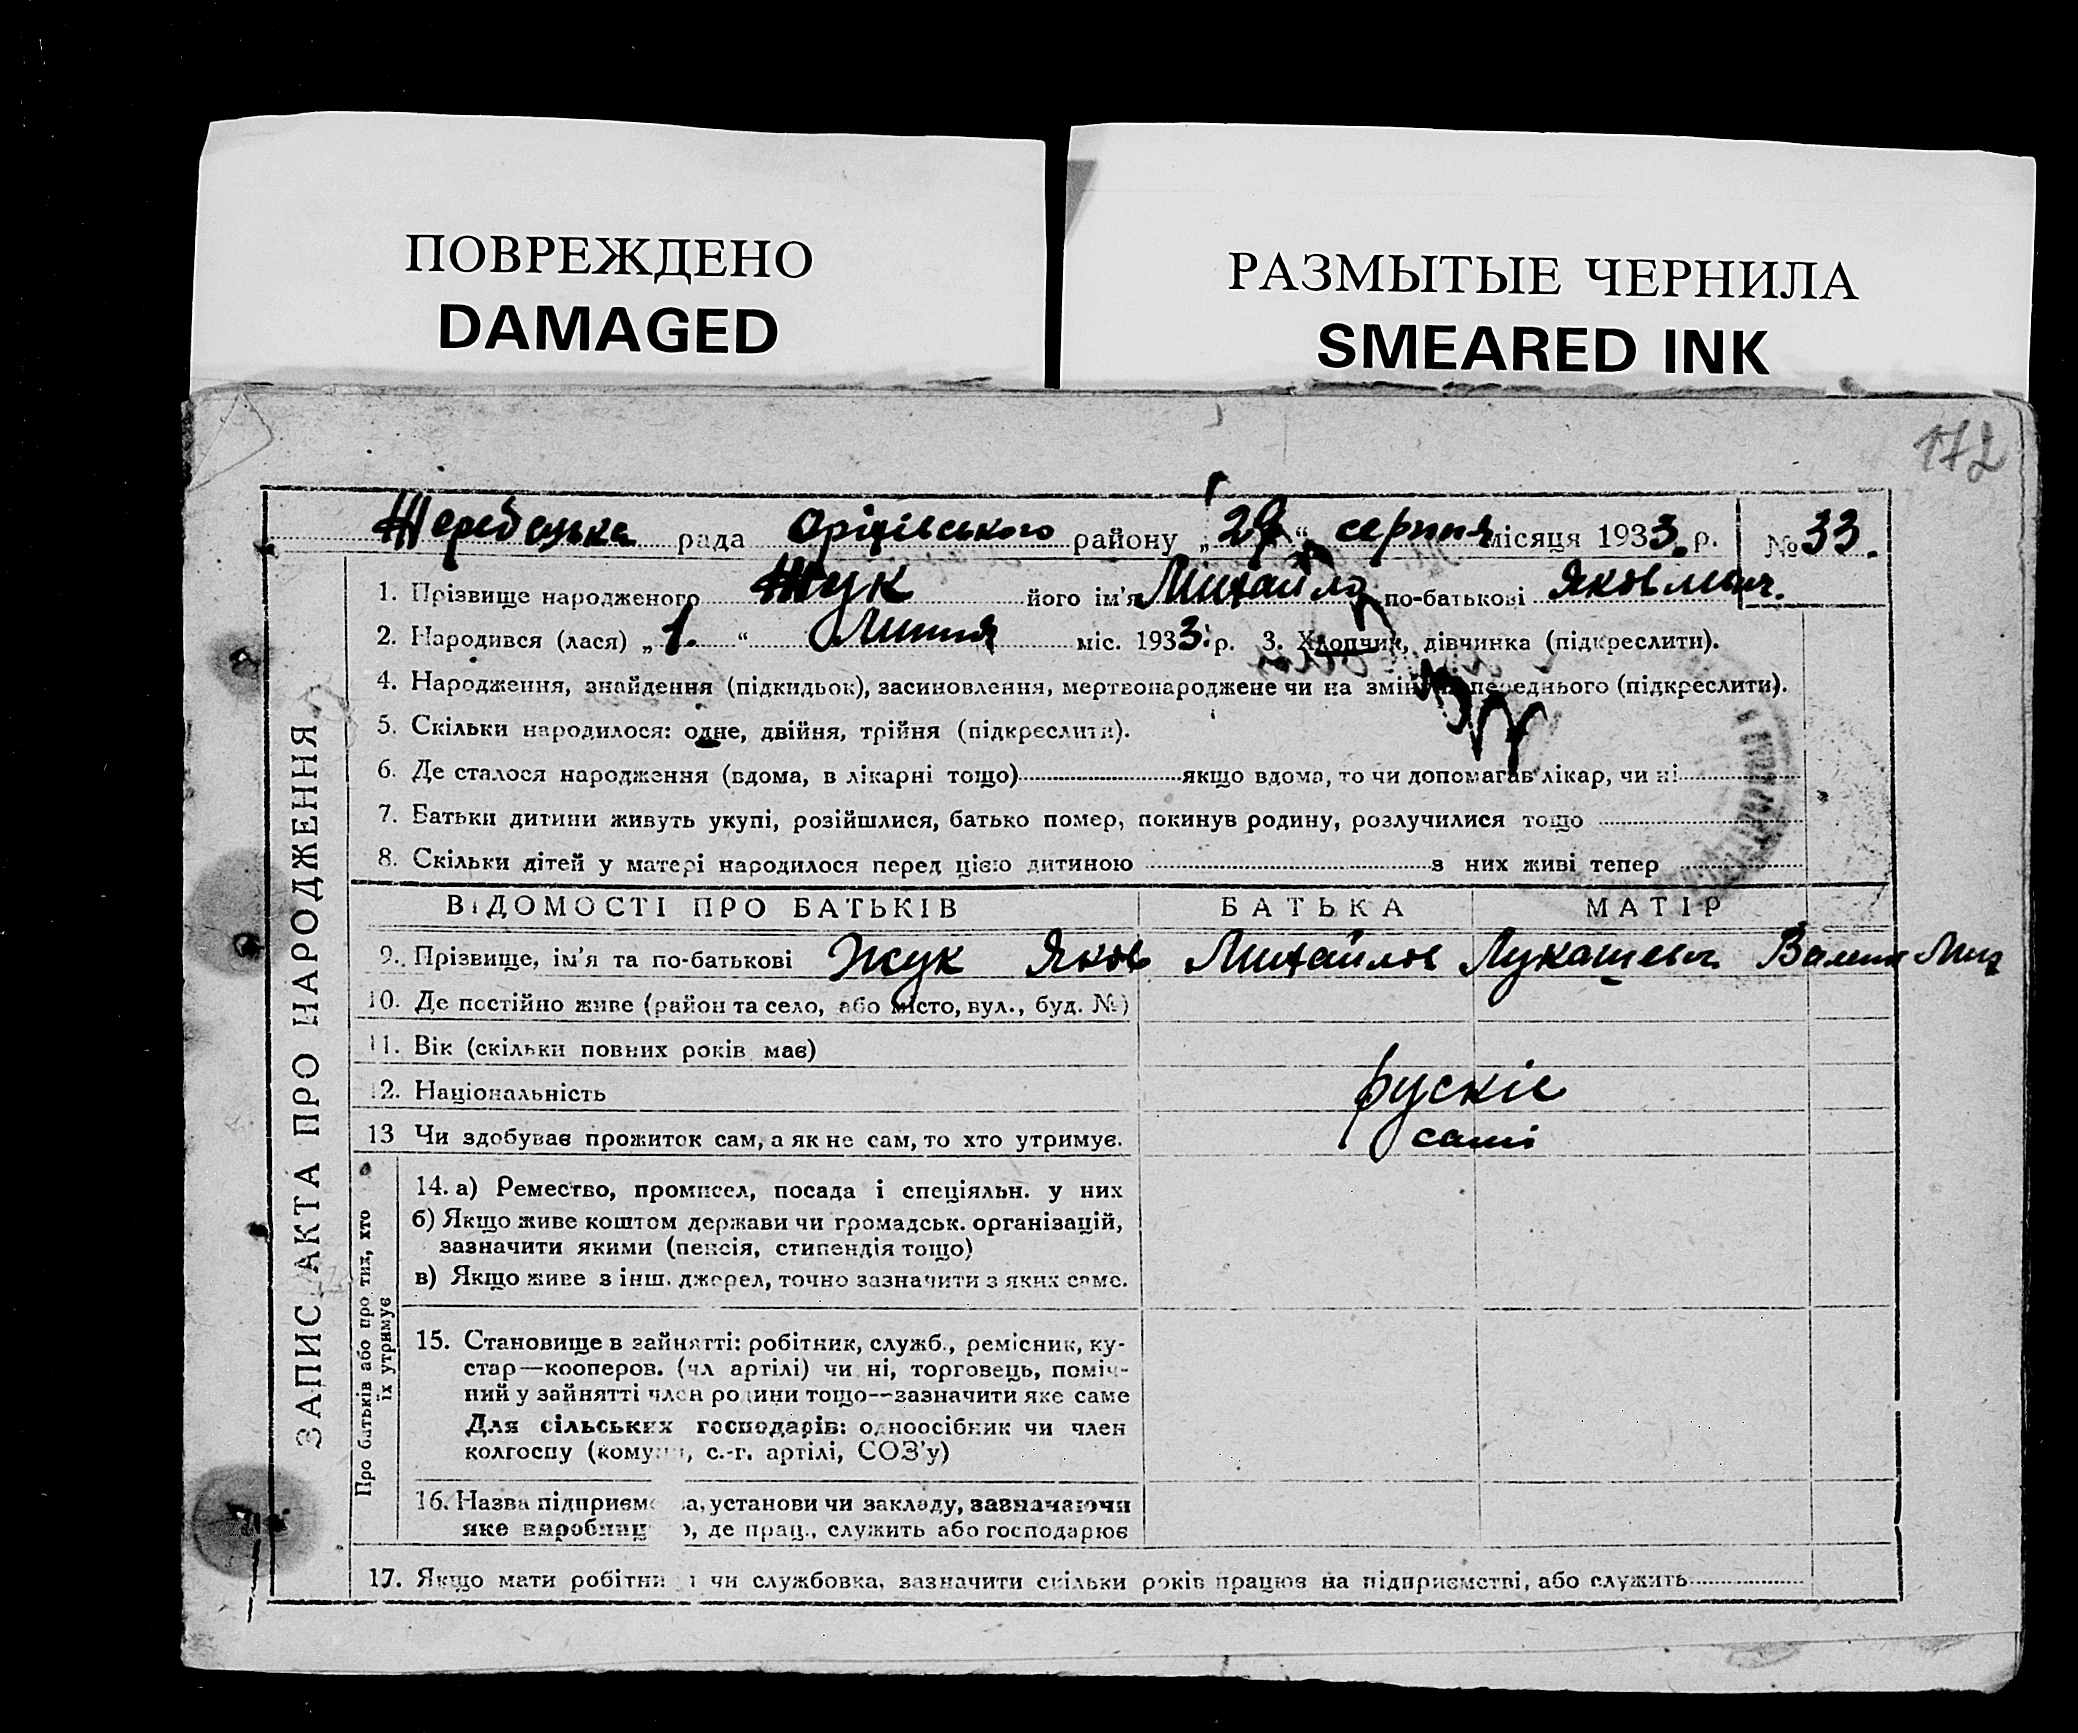 ПОВРЕЖДЕНО
DAMAGED
РАЗМЫТЫЕ ЧЕРНИЛА
SMEARED INK
172
Жеребецька рада Оріхівського району „29“ серпня місяця 1933. р. № 33.
1. Прізвище народженого Жук його ім'я Михайло по-батькові Яковлевич.
2. Народився (лася) „1.“ Липня міс. 1933 р. 3. Хлопчик, дівчинка (підкреслити).
4. Народження, знайдення (підкидьок), засиновлення, мертвонароджене чи на зміну переднього (підкреслити).
5. Скільки народилося: одне, двійня, трійня (підкреслити).
6. Де сталося народження (вдома, в лікарні тощо) якщо вдома, то чи допомагав лікар, чи ні
7. Батьки дитини живуть укупі, розійшлися, батько помер, покинув родину, розлучилися тощо
8. Скільки дітей у матері народилося перед цією дитиною з них живі тепер
ЗАПИС АКТА ПРО НАРОДЖЕННЯ
ВІДОМОСТІ ПРО БАТЬКІВ БАТЬКА МАТІР
9. Прізвище, ім'я та по-батькові Жук Яков Михайлов Лукашевич
10. Де постійно живе (район та село, або місто, вул., буд. №)
11. Вік (скільки повних років має)
12. Національність рускіе
13 Чи здобуває прожиток сам, а як не сам, то хто утримує. самі
Про батьків або про тих, хто
їх утримує
14. а) Ремество, промисел, посада і спеціяльн. у них
б) Якщо живе коштом держави чи громадськ. організацій,
зазначити якими (пенсія, стипендія тощо)
в) Якщо живе з інш. джерел, точно зазначити з яких саме.
15. Становище в зайнятті: робітник, служб., ремісник, ку-
стар—кооперов. (чл артілі) чи ні, торговець, поміч-
ний у зайнятті член родини тощо—зазначити яке саме
Для сільських господарів: одноосібник чи член
колгоспу (комуни, с.-г. артілі, СОЗ'у)
16. Назва підприємства, установи чи закладу, зазначаючи
яке виробництво, де прац., служить або господарює
17. Якщо мати робітниця чи службовка, зазначити скільки років працює на підприємстві, або служить